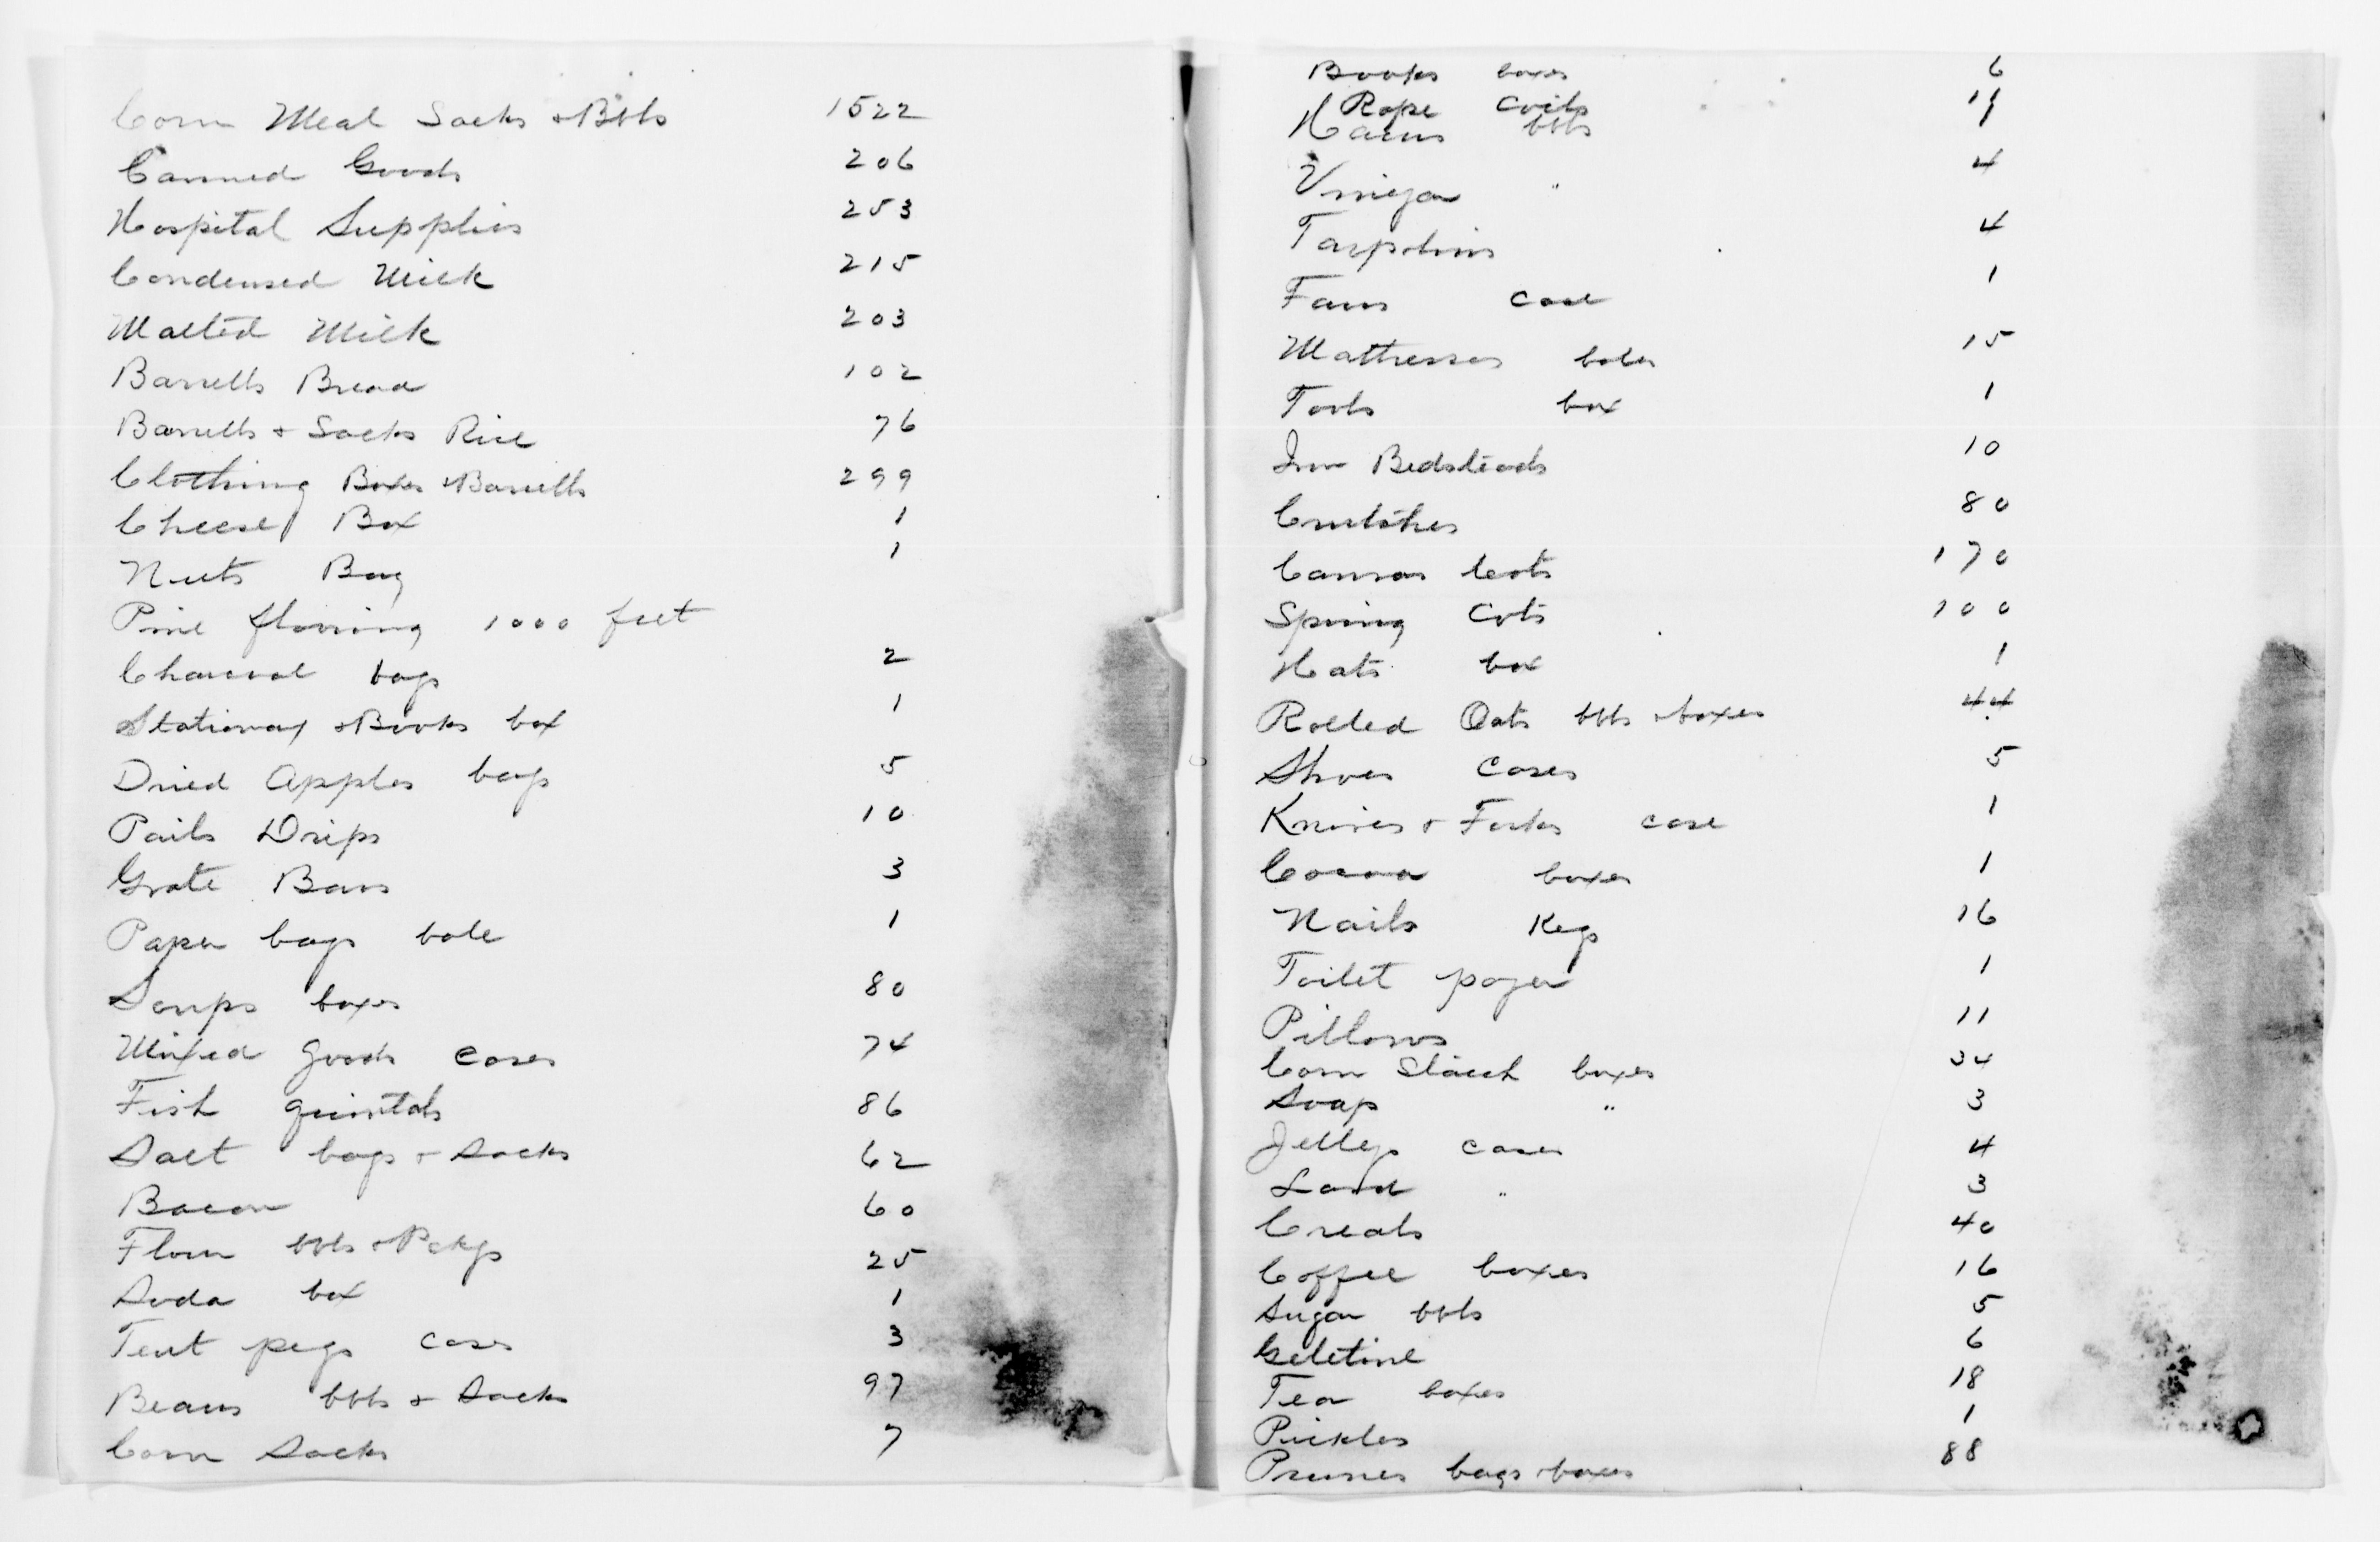 Corn Meal Sacks & Bbls 1522
Canned Goods 206
Hospital Supplies 253
Condensed Milk 215
Malted Milk 203
Barrells Bread 102
Barrells & Sacks Rice 76
Clothing Boxes & Barrells 299
Cheese Box 1
Nuts Bag 1
Pine flooring 1000 feet
Charcoal bags 2
Stationay & Books box 1
Dried Apples bags 5
Pails Drips 10
Grate Bars 3
Paper bags bale 1
Soups boxes 80
Mixed goods cases 74
Fish quintals 86
Salt bags & Sacks 62
Bacon 60
Flour bbls & Pckgs 25
Soda box 1
Tent pegs cases 3
Beans bbls & Sacks 97
Corn Sacks 7
Books boxes 6
Rope Coils 1
Hams bbls 1
Vinegar " 4
Tarpolins 4
Fans Case 1
Mattresses bales 15
Tools box 1
Iron Bedsteads 10
Crutches 80
Canvas Cots 170
Spring Cots 100
Hats box 1
Rolled Oats bbls & boxes 44
Shoes Cases 5
Knives & Forks case 1
Cocoa boxes 1
Nails Kegs 16
Toilet paper 1
Pillows 11
Corn Starch boxes 34
Soap " 3
Jellys cases 4
Lard " 3
Creals 40
Coffee boxes 16
Sugar bbls 5
Geletine 6
Tea boxes 18
Pickles 1
Prunes bags & boxes 88